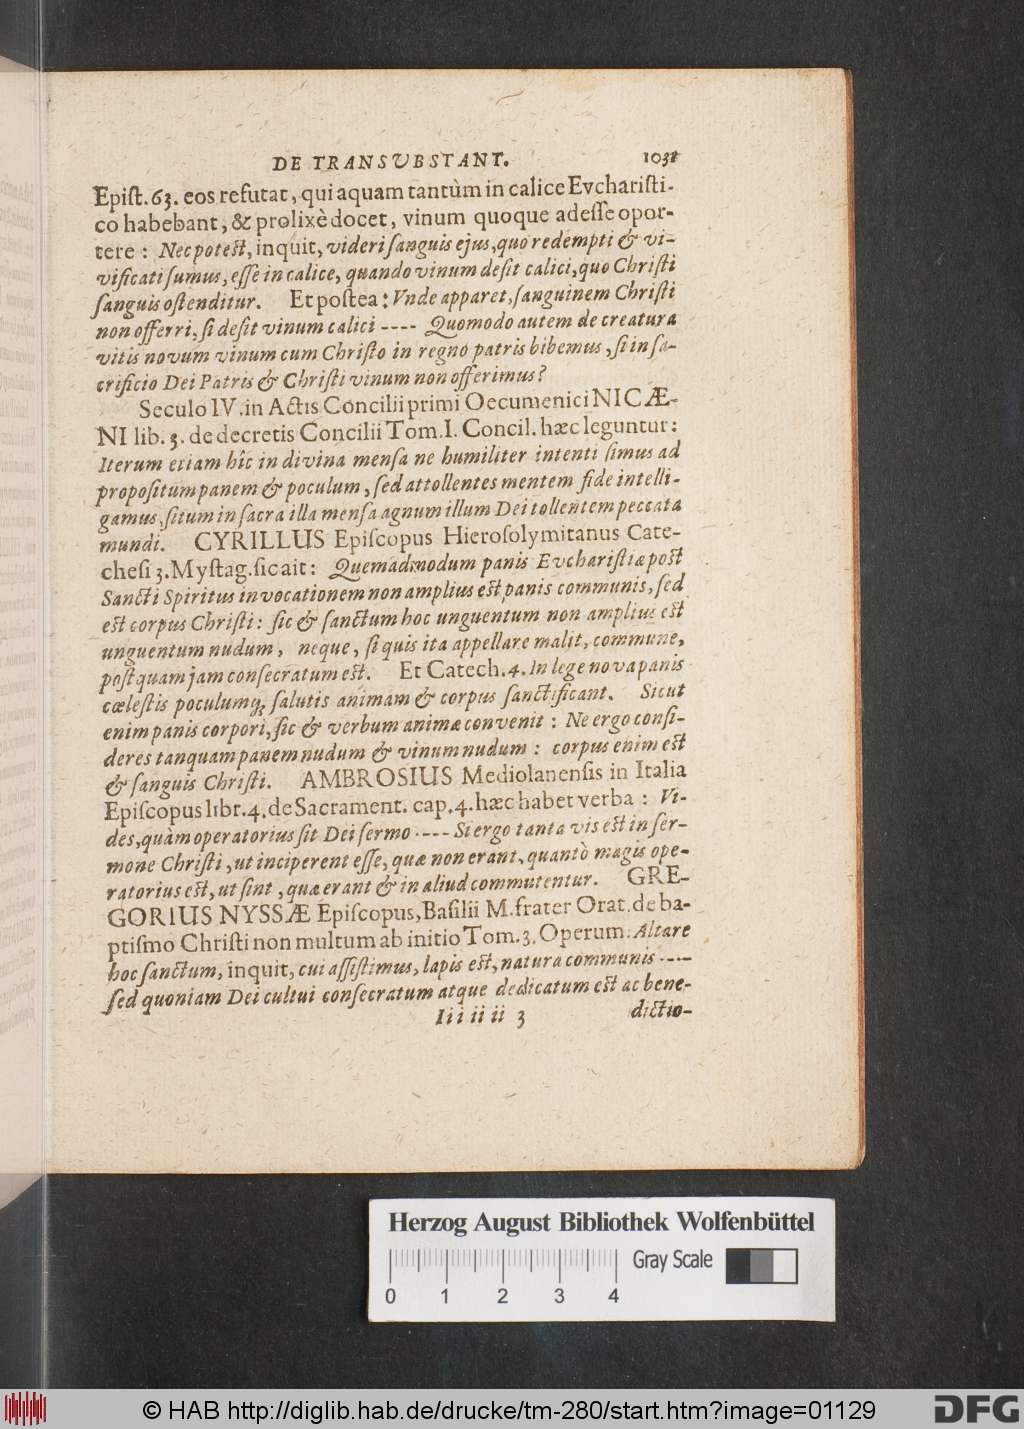 DE TRANSUBSTANT. 1031
Epiſt. 63. eos refutat, qui aquam tantùm in calice Evchariſti-
co habebant, & prolixè docet, vinum quoque adeſſe opor-
tere : Nec poteſt, inquit, videri ſanguis ejus, quo redempti & vi-
vificati ſumus, eſſe in calice, quando vinum deſit calici, quo Chriſti
ſanguis oſtenditur. Et poſtea: Vnde apparet, ſanguinem Chriſti
non offerri, ſi deſit vinum calici ---- Quomodo autem de creatura
vitis novum vinum cum Chriſto in regno patris bibemus, ſi in ſa-
crificio Dei Patris & Chriſti vinum non offerimus?
Seculo IV. in Actis Concilii primi Oecumenici NICÆ-
NI lib. 3. de decretis Concilii Tom. I. Concil. hæc leguntur:
Iterum etiam hîc in divina menſa ne humiliter intenti ſimus ad
propoſitum panem & poculum, ſed attollentes mentem fide intelli-
gamus, ſitum in ſacra illa menſa agnum illum Dei tollentem peccata
mundi. CYRILLUS Epiſcopus Hieroſolymitanus Cate-
cheſi 3. Myſtag. ſic ait: Quemadmodum panis Evchariſtiæ poſt
Sancti Spiritus invocationem non amplius eſt panis communis, ſed
eſt corpus Chriſti: ſic & ſanctum hoc unguentum non amplius eſt
unguentum nudum, neque, ſi quis ita appellare malit, commune,
poſtquam jam conſecratum eſt. Et Catech. 4. In lege nova panis
cœleſtis poculumq; ſalutis animam & corpus ſanctificant. Sicut
enim panis corpori, ſic & verbum animæ convenit : Ne ergo conſi-
deres tanquam panem nudum & vinum nudum : corpus enim eſt
& ſanguis Chriſti. AMBROSIUS Mediolanenſis in Italia
Epiſcopus libr. 4. de Sacrament. cap. 4. hæc habet verba : Vi-
des, quàm operatorius ſit Dei ſermo ---- Si ergo tanta vis eſt in ſer-
mone Chriſti, ut inciperent eſſe, quæ non erant, quantò magis ope-
ratorius eſt, ut ſint, quæ erant & in aliud commutentur. GRE-
GORIUS NYSSÆ Epiſcopus, Baſilii M. frater Orat. de ba-
ptiſmo Chriſti non multum ab initio Tom. 3. Operum: Altare
hoc ſanctum, inquit, cui aſſiſtimus, lapis eſt, natura communis ----
ſed quoniam Dei cultui conſecratum atque dedicatum eſt ac bene-
Iii ii ii 3 dictio-
Herzog August Bibliothek Wolfenbüttel
Gray Scale
0 1 2 3 4
© HAB http://diglib.hab.de/drucke/tm-280/start.htm?image=01129
DFG